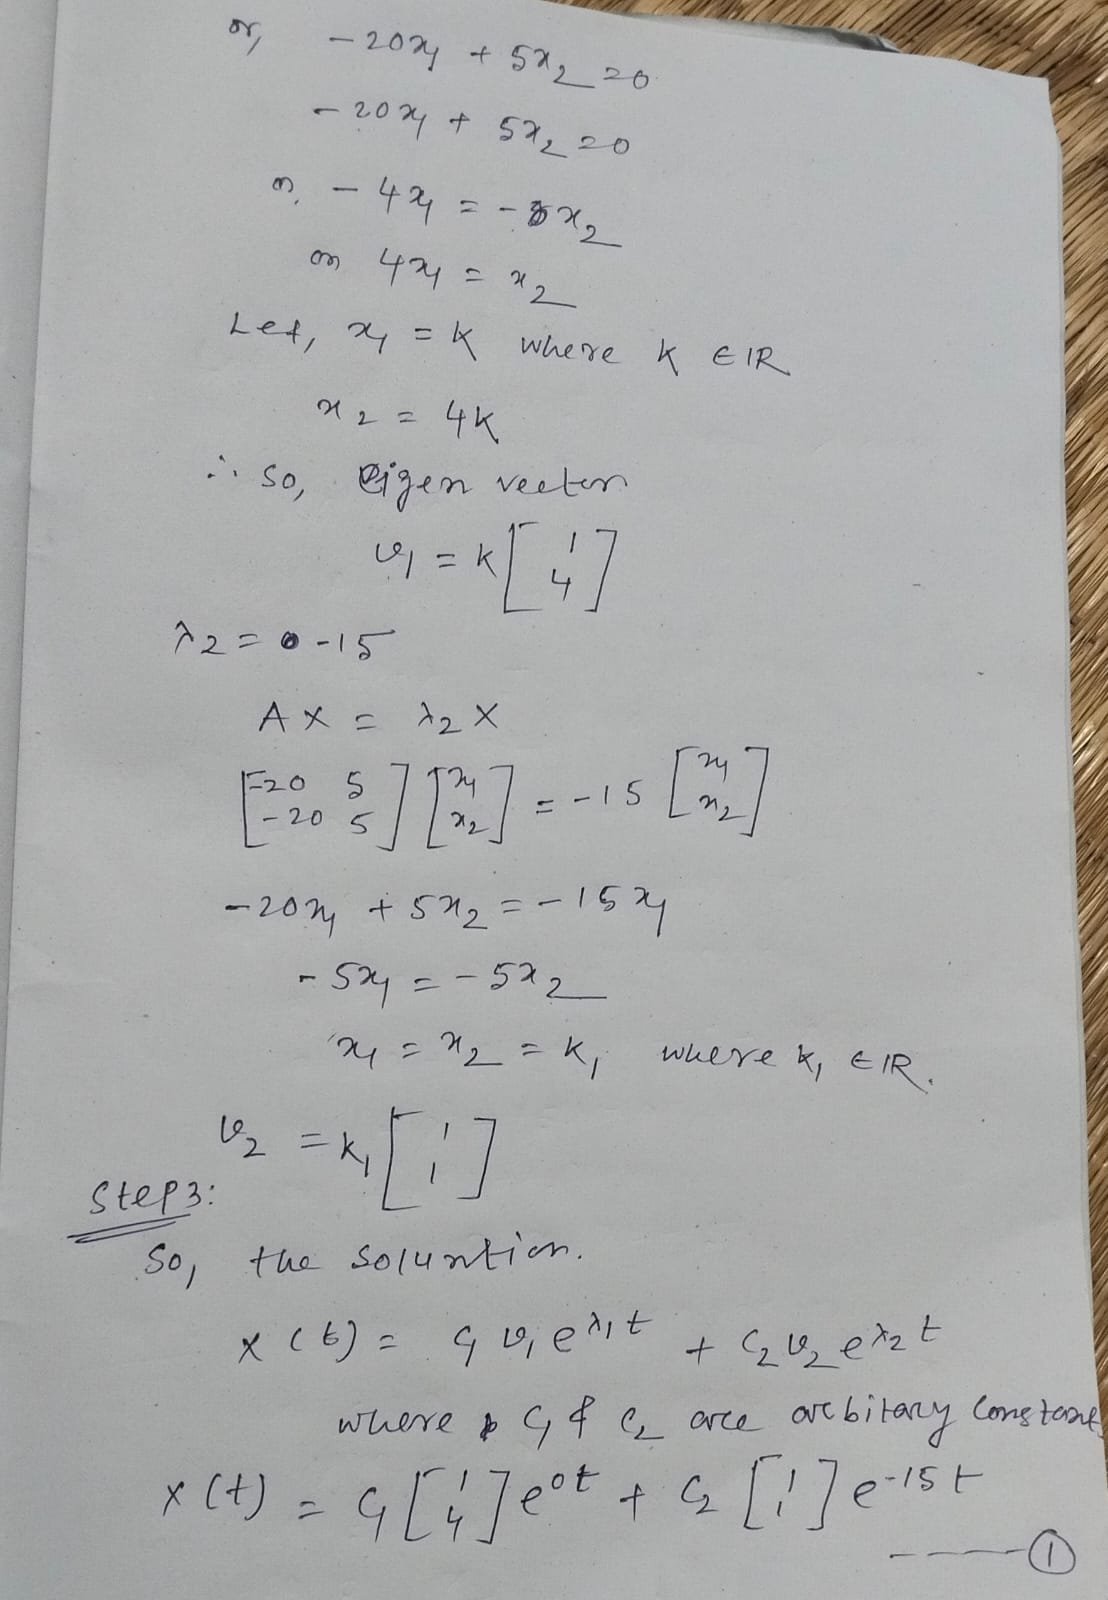 or, -20x₁ + 5x₂ = 0
-20x₁ + 5x₂ = 0
or, -4x₁ = -x₂
or 4x₁ = x₂
Let, x₁ = K where K ∈ IR
x₂ = 4K
∴ So, Eigen vector
v₁ = K [1 4]
λ2 = -15
AX = λ2 X
[-20 5 -20 5] [x₁ x₂] = -15 [x₁ x₂]
-20x₁ + 5x₂ = -15x₁
-5x₁ = -5x₂
x₁ = x₂ = K₁ where K₁ ∈ IR.
v₂ = K₁ [1 1]
Step3:
So, the soluntion.
X(t) = C₁ v₁ e^λ₁t + C₂ v₂ e^λ₂t
where C₁ & C₂ are arbitary Constant
X(t) = C₁ [1 4] e^0t + C₂ [1 1] e^-15t
------ ①